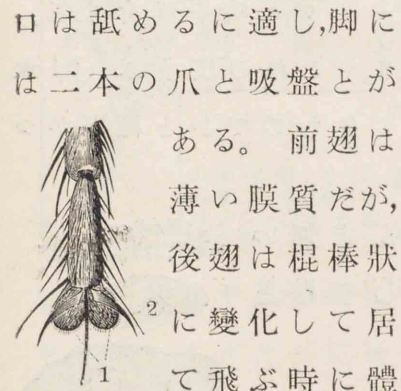 口は舐めるに適し,脚に
は二本の爪と吸盤とが
ある。 前翅は
薄い膜質だが,
後翅は棍棒狀
に變化して居
て飛ぶ時に體
2
1